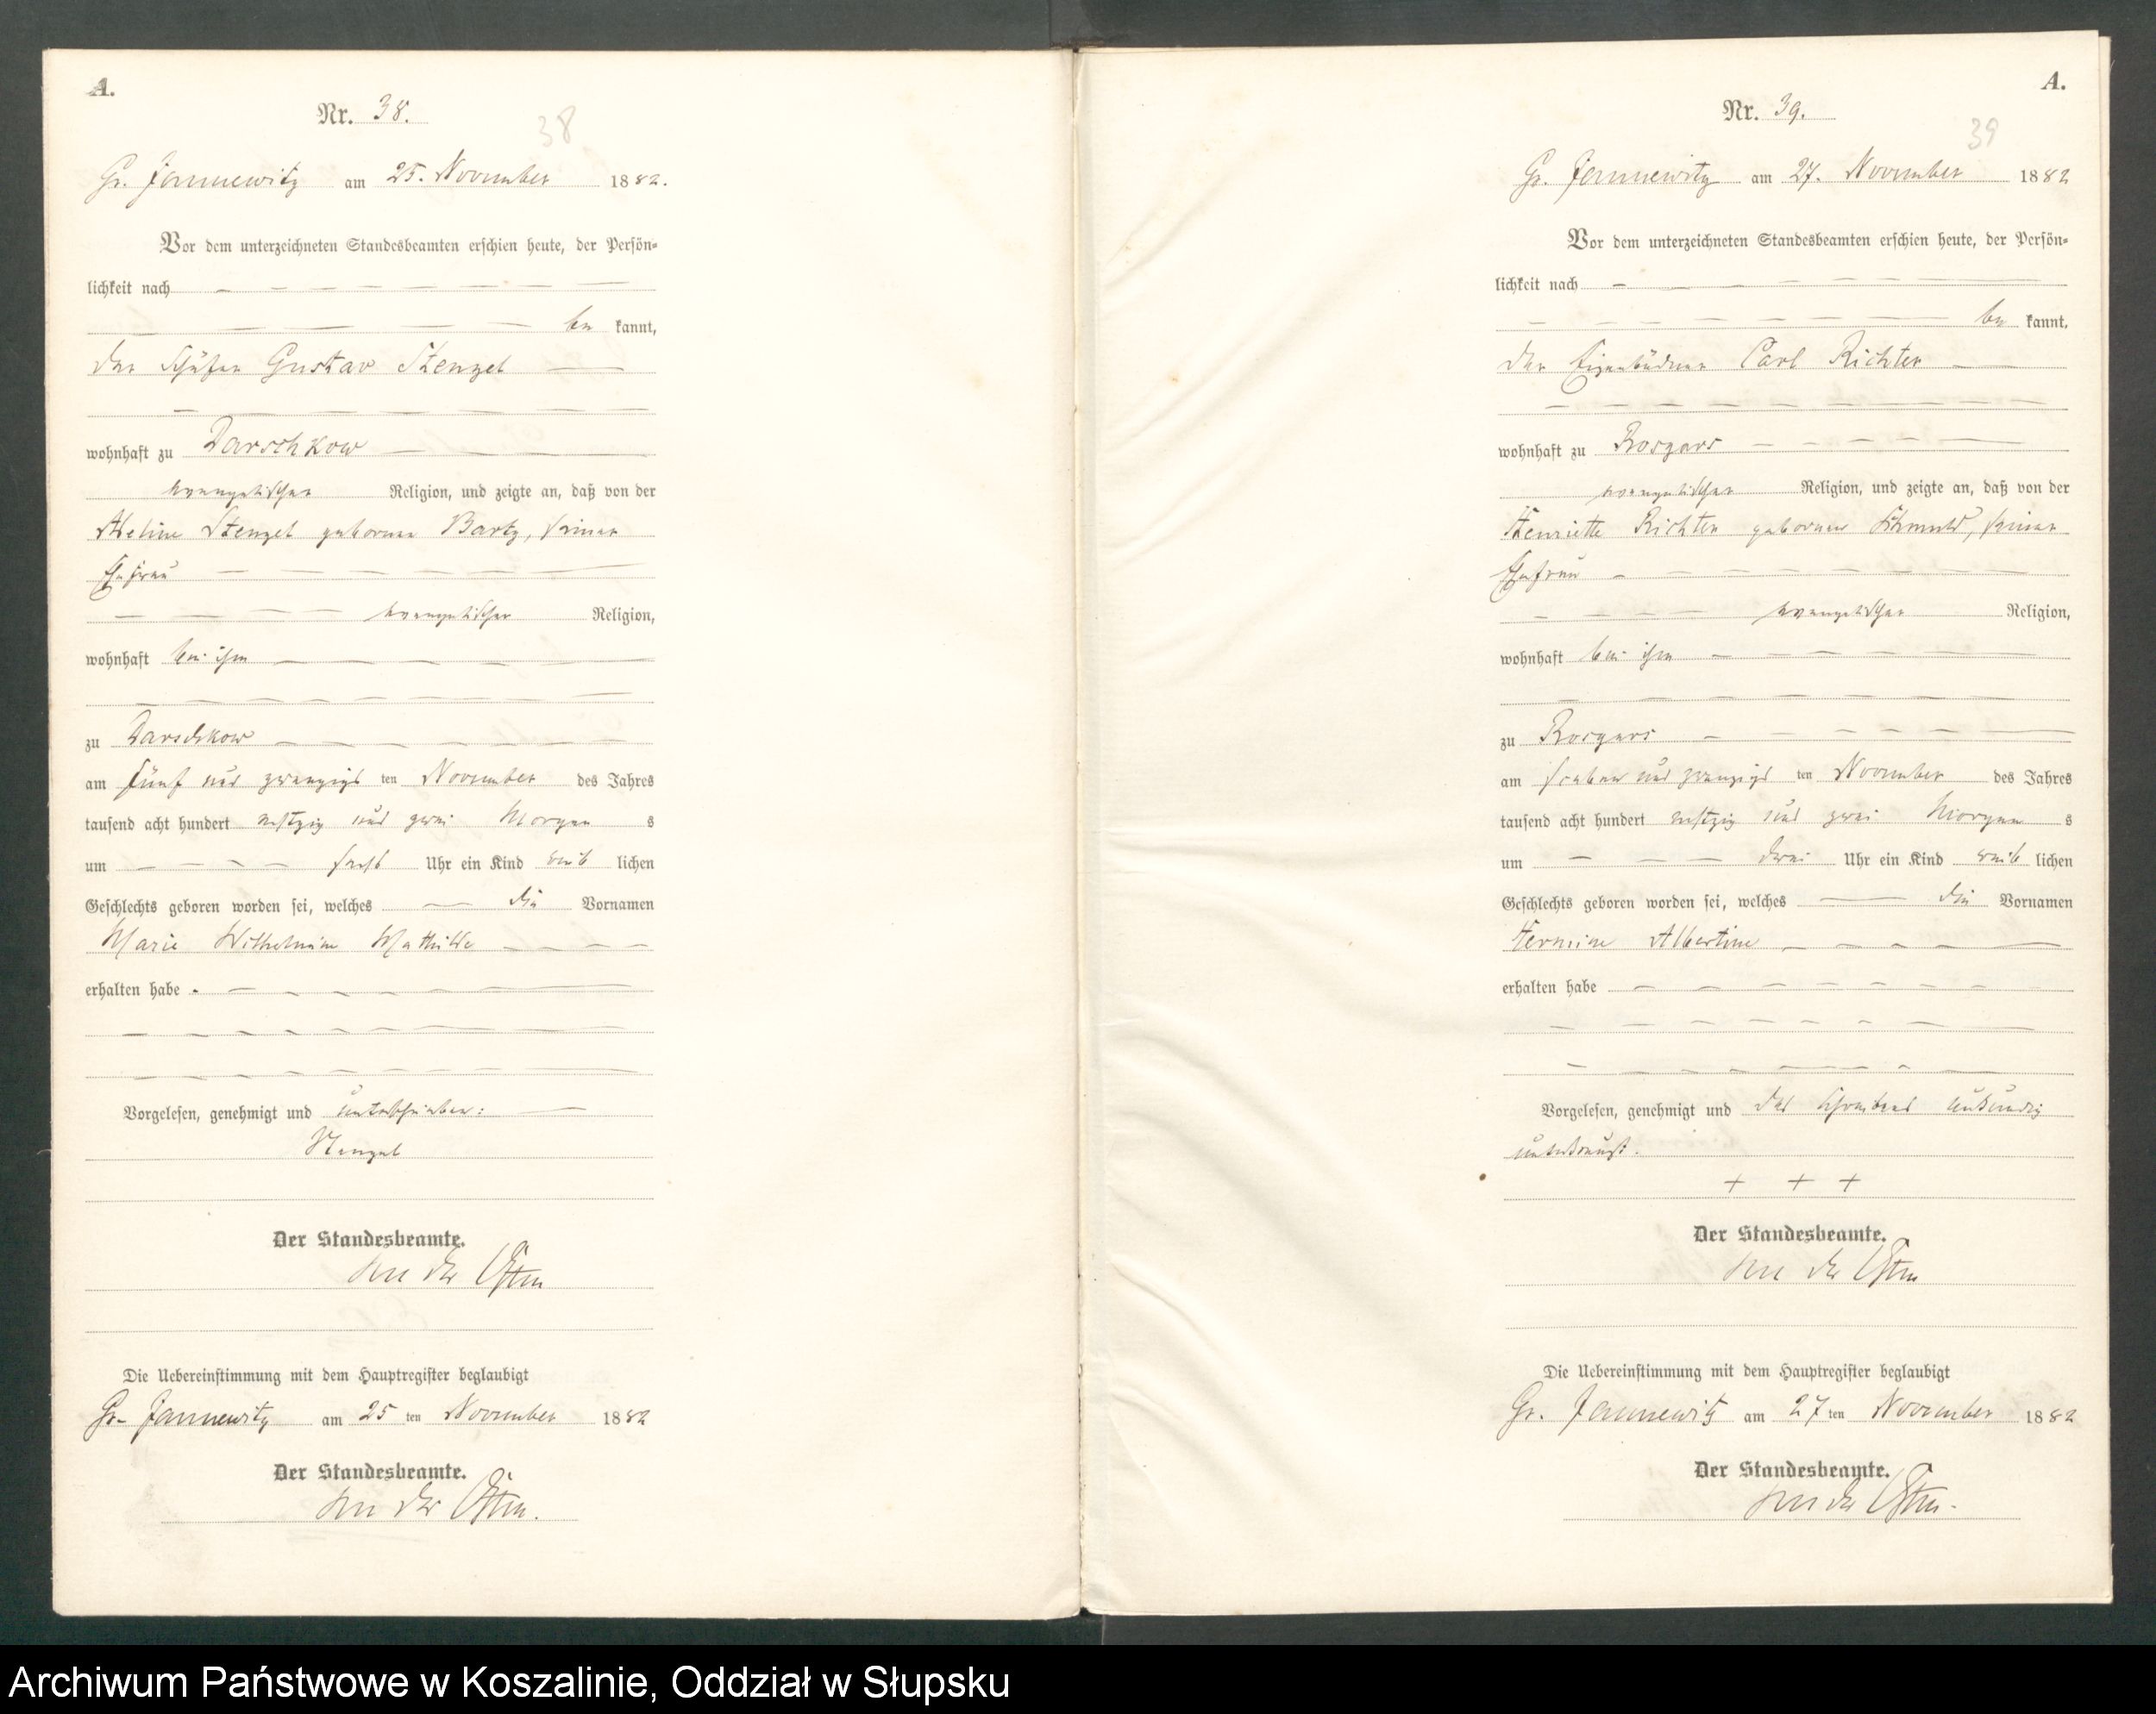 A.
Nr. 38.
38
Gr. Jannewitz am 25. November 1882.
Vor dem unterzeichneten Standesbeamten erschien heute, der Persön-
lichkeit nach
be kannt,
der Schäfer Gustav Stenzel
wohnhaft zu Darschkow
evangelischer Religion, und zeigte an, daß von der
Stenzel geborene Bartz, seiner
Ehefrau
evangelischer Religion,
wohnhaft bei ihm
zu Darschkow
am fünf und zwanzigs ten November des Jahres
tausend acht hundert achtzig und zwei Morgen s
um sechs Uhr ein Kind weib lichen
Geschlechts geboren worden sei, welches die Vornamen
Marie Wilhelmine Mathilde
erhalten habe
Vorgelesen, genehmigt und unterschrieben:
Stenzel
Der Standesbeamte.
von der Osten
Die Uebereinstimmung mit dem Hauptregister beglaubigt
Gr. Jannewitz am 25 ten November 1882
Der Standesbeamte.
von der Osten.
A.
Nr. 39.
39
Gr. Jannewitz am 27. November 1882
Vor dem unterzeichneten Standesbeamten erschien heute, der Persön-
lichkeit nach
be kannt,
der Eigenbüdner Carl Richter
wohnhaft zu Rosgars
evangelischer Religion, und zeigte an, daß von der
Henriette Richter geborene seiner
Ehefrau
evangelischer Religion,
wohnhaft bei ihm
zu Rosgars
am sieben und zwanzigs ten November des Jahres
tausend acht hundert achtzig und zwei Morgen s
um drei Uhr ein Kind weib lichen
Geschlechts geboren worden sei, welches die Vornamen
Hermine Albertine
erhalten habe
Vorgelesen, genehmigt und des Schreibens unkundig
unterkreuzt.
+ + +
Der Standesbeamte.
von der Osten
Die Uebereinstimmung mit dem Hauptregister beglaubigt
Gr. Jannewitz am 27 ten November 1882
Der Standesbeamte.
von der Osten.
Archiwum Państwowe w Koszalinie, Oddział w Słupsku